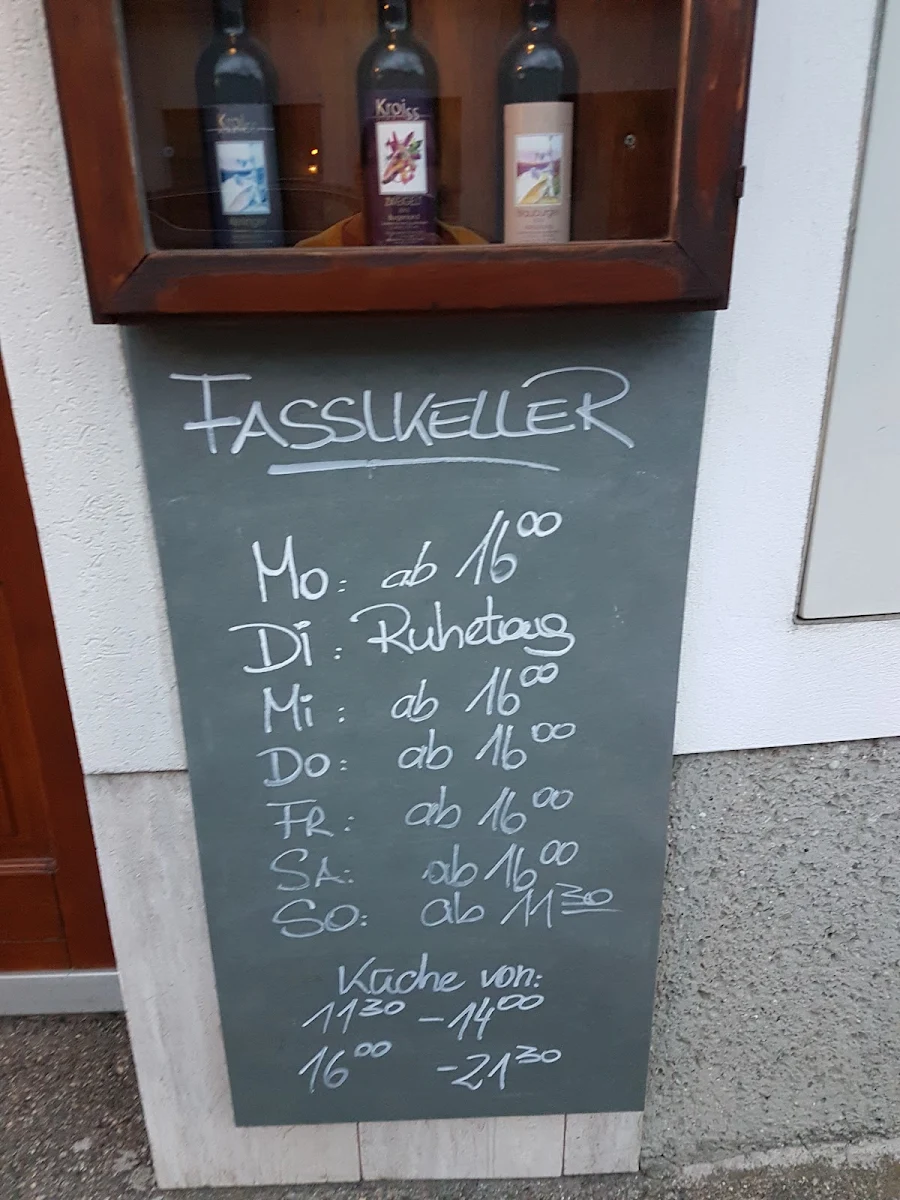 Kroiss
ZWEIGELT
Blauburger
FASSLKELLER
Mo: ab 16⁰⁰
Di: Ruhetag
Mi: ab 16⁰⁰
Do: ab 16⁰⁰
FR: ab 16⁰⁰
SA: ab 16⁰⁰
SO: ab 11³⁰
Küche von:
11³⁰ - 14⁰⁰
16⁰⁰ - 21³⁰